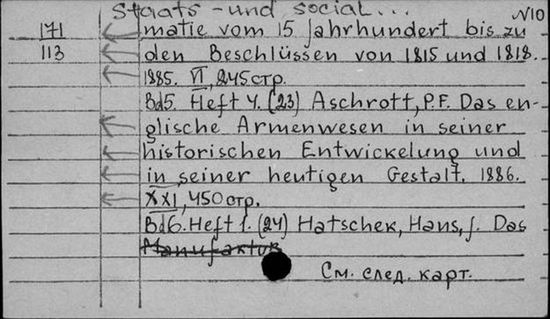 Staats- und social... №10
171 matie vom 15 Jahrhundert bis zu
113 den Beschlüssen von 1815 und 1818.
1885. VI, 245 стр.
Bd5. Heft 4. (23) Aschrott, P.F. Das en-
glische Armenwesen in seiner
historischen Entwickelung und
in seiner heutigen Gestalt. 1886.
XXI, 450 стр.
Bd6. Heft 1. (24) Hatschek, Hans, J. Das
Manufaktur
См. след. карт.